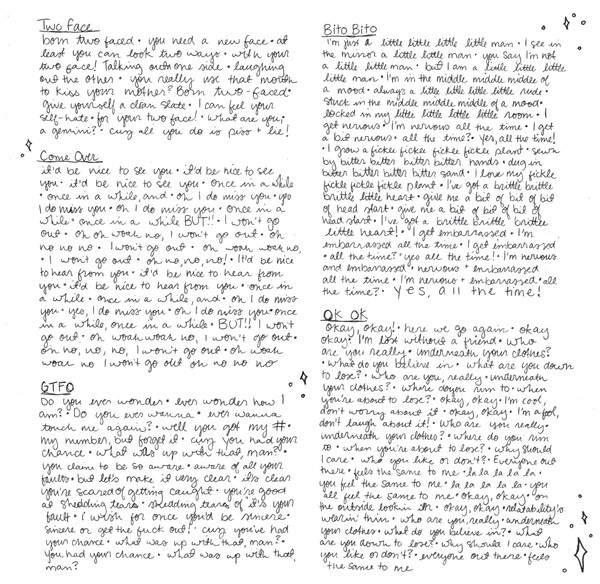 Two Face
born two faced • you need a new face • at
least you can look two ways • with your
two face! Talking outta one side • laughing
out the other • you really use that mouth
to kiss your mother? Born two-faced •
give yourself a clean slate • I can feel your
self-hate • for your two face! • what are you,
a gemini? • cuz all you do is piss + lie!
Come Over
it'd be nice to see you • it'd be nice to see
you • it'd be nice to see you • once in a while
• once in a while, and • oh I do miss you • yes
I do miss you • oh I do miss you • once in a
while • once in a while BUT!! • I won't go
out • oh oh woah no, I won't go out • oh
no no no • I won't go out • oh woah woah no,
• I won't go out • oh no, no, no! • It'd be nice
to hear from you • it'd be nice to hear from
you • it'd be nice to hear from you • once in
a while • once in a while, and • oh I do miss
you • yes, I do miss you • oh I do miss you • once
in a while, once in a while • BUT!! I won't
go out • oh woah woah no, I won't go out •
oh no, no, no, I won't go out • oh woah
woah no I won't go out oh no no no
GTFO
Do you ever wonder • ever wonder how I
am? • Do you ever wanna • ever wanna
touch me again? • well you got my # •
my number, but forget it • cuz you had your
chance • what was up with that, man? •
you claim to be so aware • aware of all your
faults • but let's make it very clear • it's clear
you're scared of getting caught • you're good
at shedding tears • shedding tears of "it's your
fault • I wish for once you'd be sincere •
sincere or get the fuck out! • cuz you've had
your chance • what was up with that, man? •
you had your chance • what was up with that,
man?
Bito Bito
I'm just a little little little little man • I see in
the minor a little little little man • you say I'm not
a little little man • but I am a little little little
little man • I'm in the middle middle middle of
a mood • always a little little little little rude •
stuck in the middle middle middle of a mood •
locked in my little little little little room • I
get nervous • I'm nervous all the time • I get
a bit nervous • all the time? • Yes, all the time!
• I grow a fickle fickle fickle fickle plant • sewn
by bitter bitter bitter bitter hands • dug in
bitter bitter bitter bitter sand • I love my fickle
fickle fickle fickle plant • I've got a brittle brittle
brittle little heart • give me a bit of bit of bit
of head start • give me a bit of bit of bit of
head start • I've got a brittle brittle brittle
little heart! • I get embarrassed • I'm
embarrassed all the time • I get embarrassed
• all the time? • yes all the time! • I'm nervous
and embarrassed • nervous + embarrassed
all the time • I'm nervous • embarrassed • all
the time? • Yes, all the time!
OK OK
Okay, okay! • here we go again • okay
okay • I'm lost without a friend • who
are you really • underneath your clothes?
• what do you believe in • what are you down
to lose? • who are you, really • underneath
your clothes? • where do you run to • when
you're about to lose? • okay, okay • I'm cool,
don't worry about it • okay, okay • I'm a fool,
don't laugh about it! • who are you really •
underneath your clothes? • where do you run
to • when you're about to lose? • why should
I care • who you like or don't? • Everyone out
there • feels the same to me • la la la la la •
you feel the same to me • la la la la la • you
all feel the same to me • okay, okay • on
the outside lookin in • okay, okay • relatability's
wearin' thin • who are you, really • underneath
your clothes • what do you believe in? • what
are you down to lose? • why should I care • who
you like or don't? • everyone out there • feels
the same to me